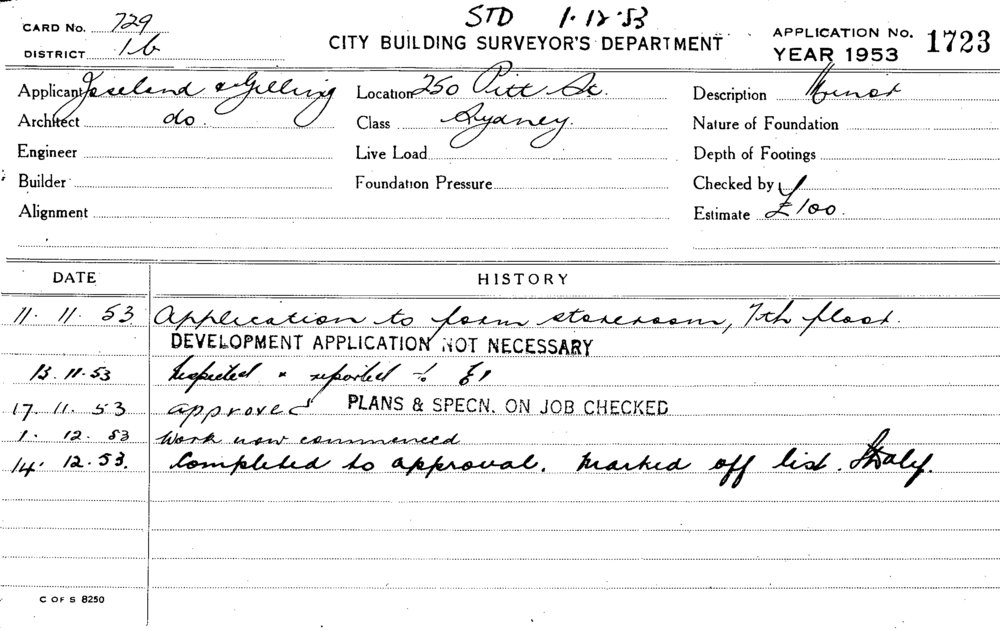 STD 1·12·53
CARD NO. 729
CITY BUILDING SURVEYOR'S DEPARTMENT
APPLICATION NO. 1723
DISTRICT 16
YEAR 1953
Applicant Joseland & Gilling Location 250 Pitt St. Description Minor
Architect do. Class Sydney. Nature of Foundation
Engineer Live Load Depth of Footings
Builder Foundation Pressure Checked by
Alignment Estimate £100.
DATE HISTORY
11. 11. 53. Application to form storeroom, 7th floor.
DEVELOPMENT APPLICATION NOT NECESSARY
13.11.53 Inspected & reported
17. 11. 53 approved PLANS & SPECN. ON JOB CHECKED
1. 12. 53 Work now commenced
14. 12. 53. Completed to approval. Marked off list.
C OF S 8250